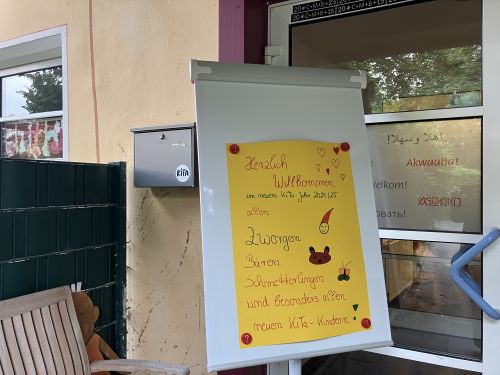 20*C+M+B+23
أهلا و سهلا!
Akwaaba!
elkom!
欢迎你们
овать!
KiTA
Herzlich
Willkommen
im neuen KiTa Jahr 2024/25
allen
Zwergen
Bären
Schmetterlingen
und besonders allen
neuen KiTa - Kindern!